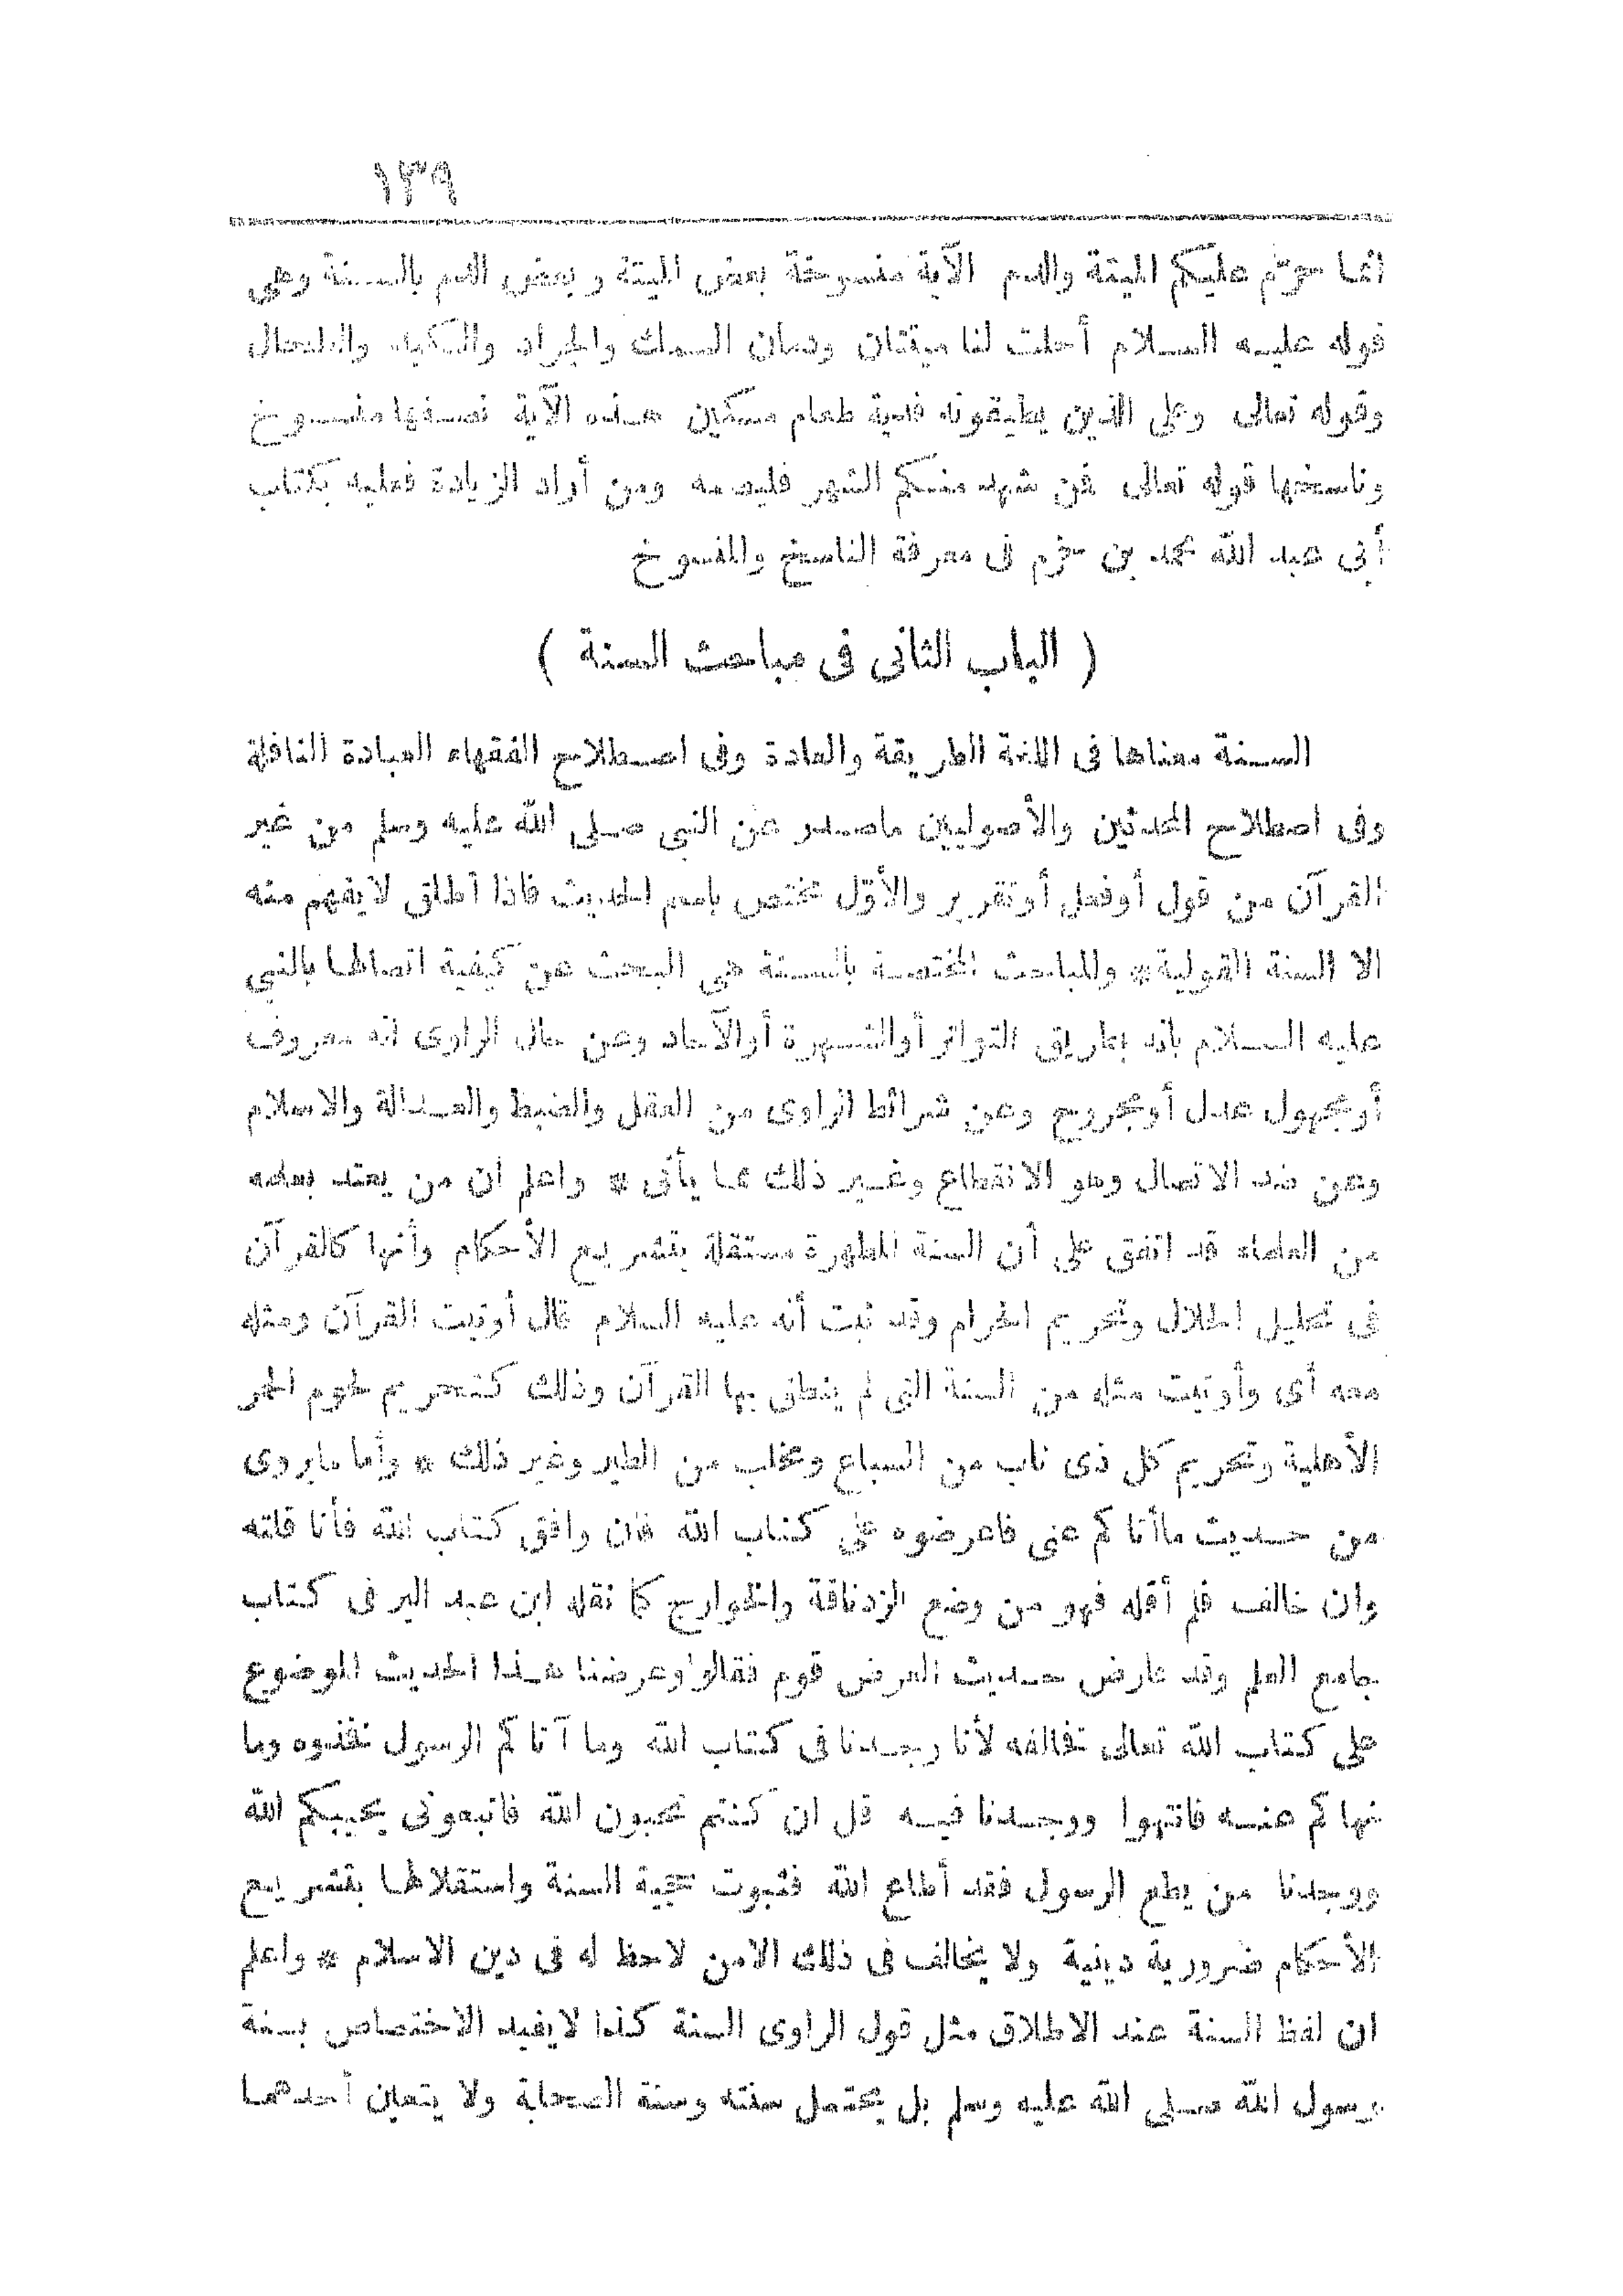 ١٣٩
انما حرّم عليكم الميتة والدم الآية منسوخة بعض الميتة وبعض الدم بالسنة وهى
قوله عليه السلام أحلت لنا ميتتان ودمان السمك والجراد والكبد والطحال
وقوله تعالى وعلى الذين يطيقونه فدية طعام مسكين هذه الآية نصفها منسوخ
وناسخها قوله تعالى فمن شهد منكم الشهر فليصمه ومن أراد الزيادة فعليه بكتاب
أبى عبد الله محمد بن حزم فى معرفة الناسخ والمنسوخ
( الباب الثانى فى مباحث السنة )
السنة معناها فى اللغة الطريقة والعادة وفى اصطلاح الفقهاء العبادة النافلة
وفى اصطلاح المحدثين والأصوليين ماصدر عن النبى صلى الله عليه وسلم من غير
القرآن من قول أوفعل أوتقرير والأوّل مختص باسم الحديث فاذا أطلق لايفهم منه
الا السنة القولية * والمباحث المختصة بالسنة هى البحث عن كيفية اتصالها بالنبى
عليه السلام بانه بطريق التواتر أوالشهرة أوالآحاد وعن حال الراوى انه معروف
أومجهول عدل أومجروح وعن شرائط الراوى من العقل والضبط والعدالة والاسلام
وعن ضد الاتصال وهو الانقطاع وغير ذلك مما يأتى * واعلم ان من يعتد بعلمه
من العلماء قد اتفق على أن السنة المطهرة مستقلة بتشريع الأحكام وأنها كالقرآن
فى تحليل الحلال وتحريم الحرام وقد ثبت أنه عليه السلام قال أوتيت القرآن ومثله
معه أى وأوتيت مثله من السنة التى لم ينطق بها القرآن وذلك كتحريم لحوم الحمر
الأهلية وتحريم كل ذى ناب من السباع ومخلب من الطير وغير ذلك * وأما مايروى
من حديث ماأتاكم عنى فاعرضوه على كتاب الله فان وافق كتاب الله فأنا قلته
وان خالف فلم أقله فهو من وضع الزنادقة والخوارج كما نقله ابن عبد البر فى كتاب
جامع العلم وقد عارض حديث العرض قوم فقالوا وعرضنا هذا الحديث الموضوع
على كتاب الله تعالى فخالفه لأنا وجدنا فى كتاب الله وما آتاكم الرسول فخذوه وما
نهاكم عنه فانتهوا ووجدنا فيه قل ان كنتم تحبون الله فاتبعونى يحببكم الله
ووجدنا من يطع الرسول فقد أطاع الله فثبوت حجية السنة واستقلالها بتشريع
الأحكام ضرورية دينية ولا يخالف فى ذلك الا من لاحظ له فى دين الاسلام * واعلم
ان لفظ السنة عند الاطلاق مثل قول الراوى السنة كذا لايفيد الاختصاص بسنة
رسول الله صلى الله عليه وسلم بل يحتمل سنته وسنة الصحابة ولا يتعين أحدهما